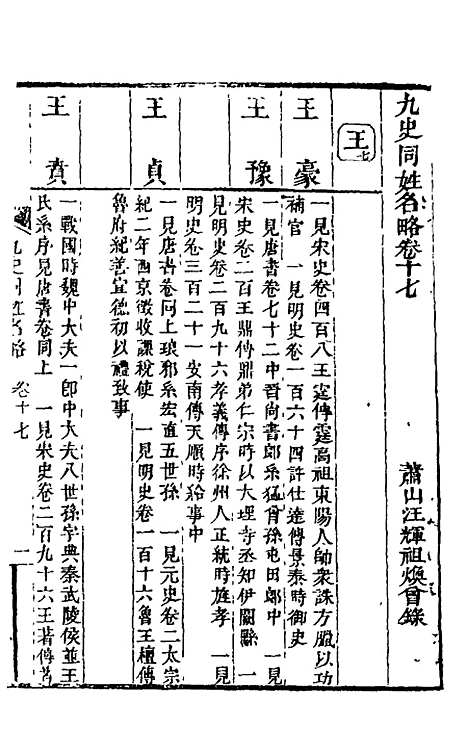 九史同姓名略卷十七
蕭山汪輝祖煥曾錄
王七
王豪
一見宋史卷四百八王霆傳霆高祖東陽人帥衆誅方臘以功
補官 一見明史卷一百六十四許仕達傳景泰時御史
王豫
一見唐書卷七十二中晋尚書郎系猛曾孫屯田郎中 一見
宋史卷二百王鼎傳鼎弟仁宗時以大理寺丞知伊闕縣 一
見明史卷二百九十六孝義傳序徐州人正統時旌孝 一見
明史卷三百二十一安南傳天順時給事中
王貞
一見唐書卷同上琅邪系宏直五世孫 一見元史卷二太宗
紀二年西京徵收課稅使 一見明史卷一百十六魯王檀傳
魯府紀善宣德初以禮致事
王賁
一戰國時魏中大夫一郎中大夫八世孫字典秦武陵侯並王
氏系序見唐書卷同上 一見宋史卷二百九十六王著傳著
九史同姓名略 卷十七 一